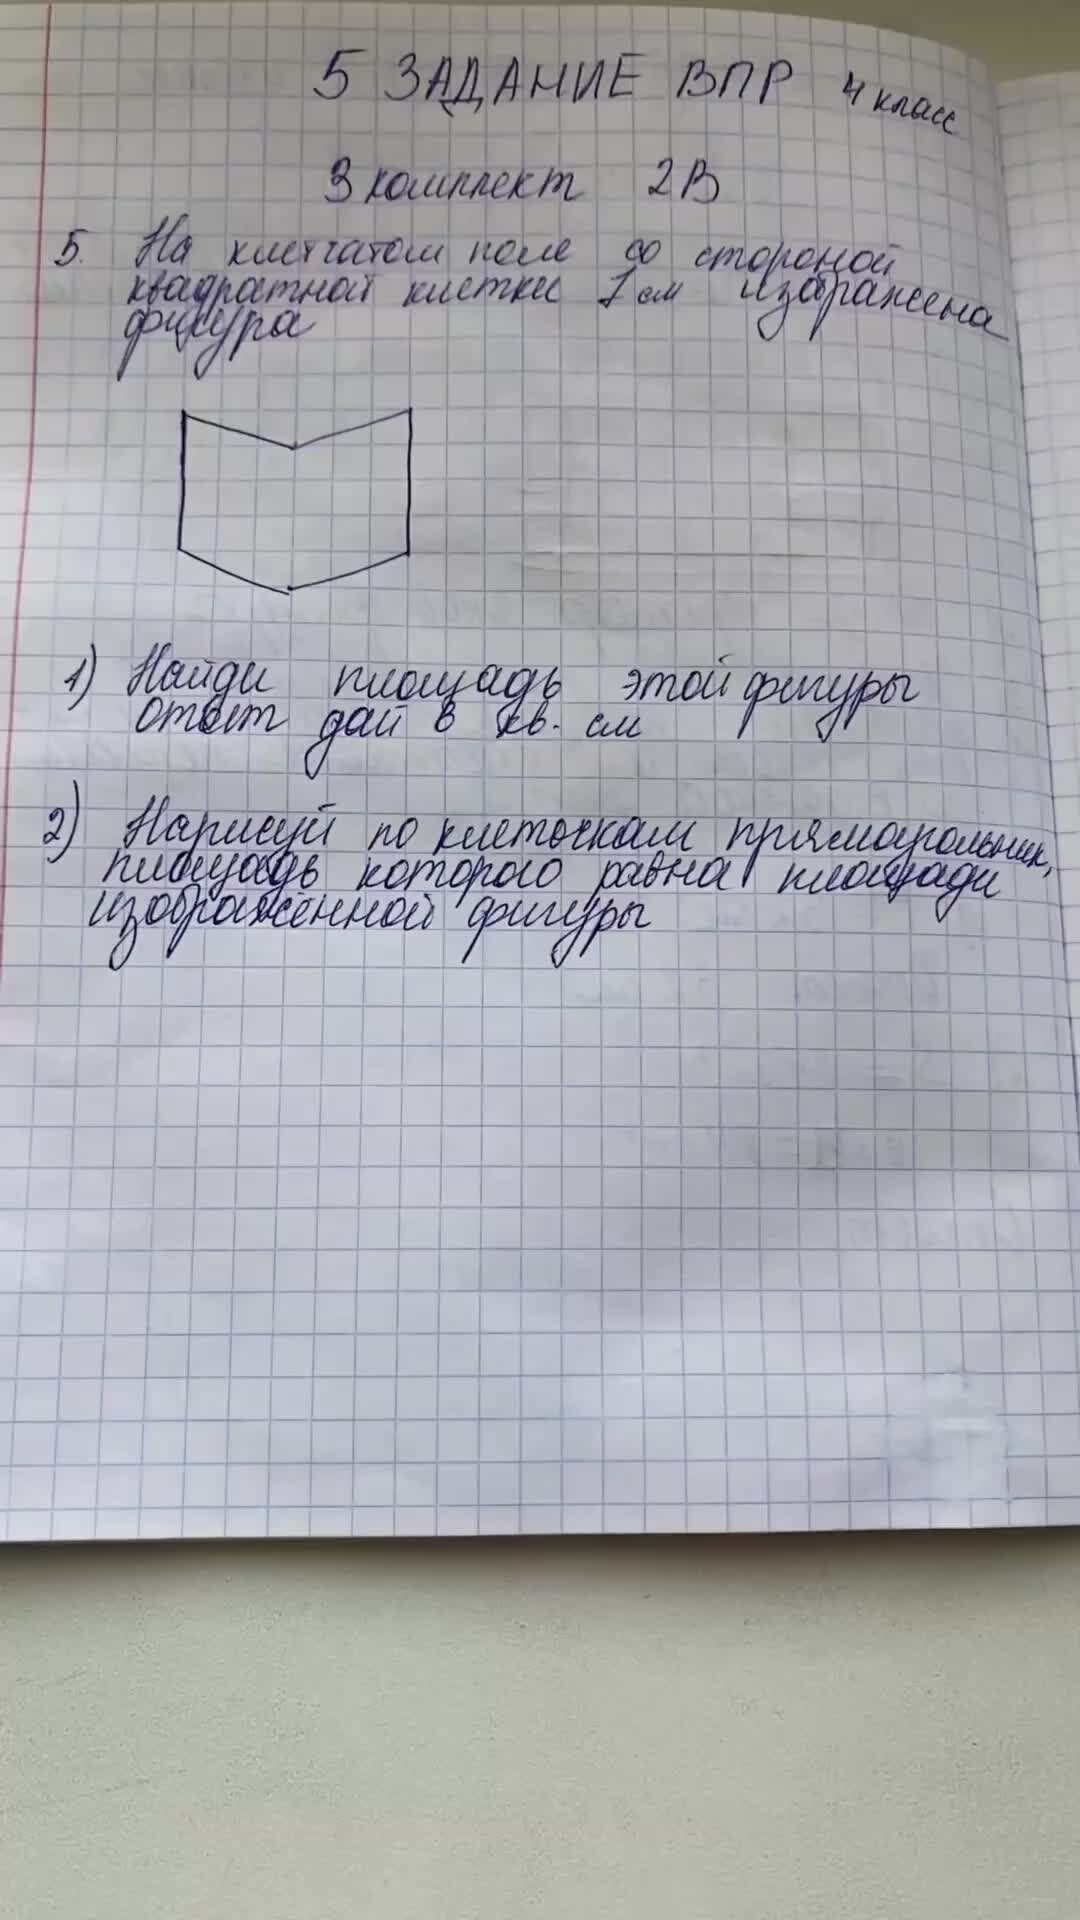 5 ЗАДАНИЕ ВПР 4 класс
3 комплект 2В
5. На клетчатом поле со стороной
квадратной клетки 1 см изображена
фигура
1) Найди площадь этой фигуры
ответ дай в кв. см
2) Нарисуй по клеточкам прямоугольник,
площадь которого равна площади
изображённой фигуры